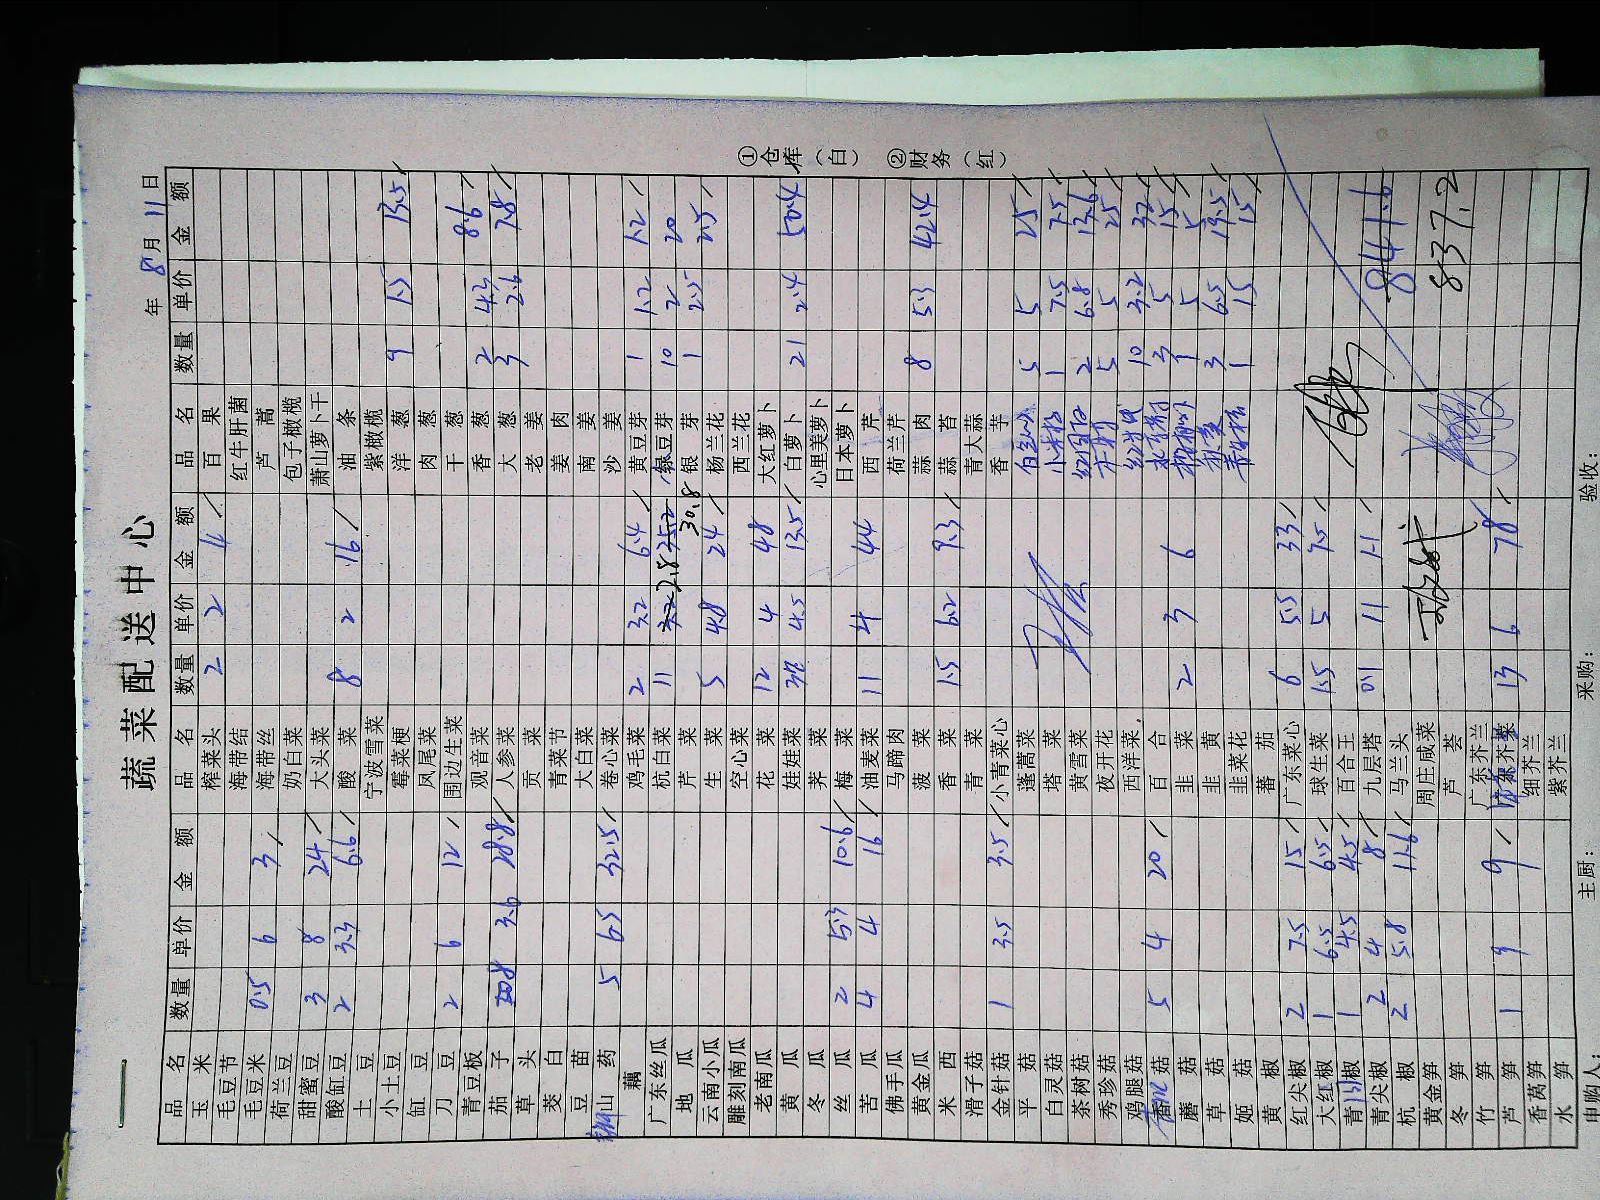 蔬菜配送中心
年 8月 11日
品名 数量 单价 金额 品名 数量 单价 金额 品名 数量 单价 金额
玉米 榨菜头 2 2 4 百果
毛豆节 海带结 红牛肝菌
毛豆米 0.5 6 3 海带丝 芦蒿
荷兰豆 奶白菜 包子橄榄
甜蜜豆 3 8 24 大头菜 萧山萝卜干
酸缸豆 2 3.3 6.6 酸菜 8 2 16 油条
土豆 宁波雪菜 紫橄榄
小土豆 霉菜梗 洋葱 9 1.5 13.5
缸豆 凤尾菜 肉葱
刀豆 2 6 12 围边生菜 干葱
青豆板 观音菜 香葱 2 4.3 8.6
茄子 8 3.6 28.8 人参菜 大葱 3 2.6 7.8
草头 贡菜 老姜
茭白 青菜节 姜肉
豆苗 大白菜 南姜
山药 5 6.5 32.5 卷心菜 沙姜
藕 鸡毛菜 2 3.2 6.4 黄豆芽 1 1.2 1.2
广东丝瓜 杭白菜 11 2.8 30.8 绿豆芽 10 2 20
地瓜 芹菜 银芽 1 2.5 2.5
云南小瓜 生菜 5 4.8 24 杨兰花
雕刻南瓜 空心菜 西兰花
老南瓜 花菜 12 4 48 大红萝卜
黄瓜 娃娃菜 3 4.5 13.5 白萝卜 21 2.4 50.4
冬瓜 荠菜 心里美萝卜
丝瓜 2 5.3 10.6 梅菜 日本萝卜
苦瓜 4 4 16 油麦菜 11 4 44 西芹
佛手瓜 马蹄肉 荷兰芹
黄金瓜 菠菜 蒜肉 8 5.3 42.4
米西 香菜 1.5 6.2 9.3 蒜苔
滑子菇 青菜 青大蒜
金针菇 1 3.5 3.5 小青菜心 香芋
平菇 蓬蒿菜 5 5 25
白灵菇 塔菜 小米椒 1 7.5 7.5
茶树菇 黄雪菜 2 6.8 13.6
秀珍菇 夜开花 5 5 25
鸡腿菇 西洋菜 10 3.2 32
香菇 5 4 20 百合 3 5 15
蘑菇 韭菜 2 3 6 1 5 5
草菇 韭黄 3 6.5 19.5
姬菇 韭菜花 1 15 15
黄椒 蕃茄
红尖椒 2 7.5 15 广东菜心 6 5.5 33
大红椒 1 6.5 6.5 球生菜 1.5 5 7.5
青椒 1 4.5 4.5 百合王
青尖椒 2 4 8 九层塔 0.1 11 1.1 841.6
杭椒 2 5.8 11.6 马兰头
黄金笋 周庄咸菜
冬笋 芦荟 837.2
竹笋 广东芥兰
芦笋 1 9 9 芥菜 13 6 78
香莴笋 细芥兰
水笋 紫芥兰
申购人： 主厨： 采购： 验收：
①仓库（白） ②财务（红）